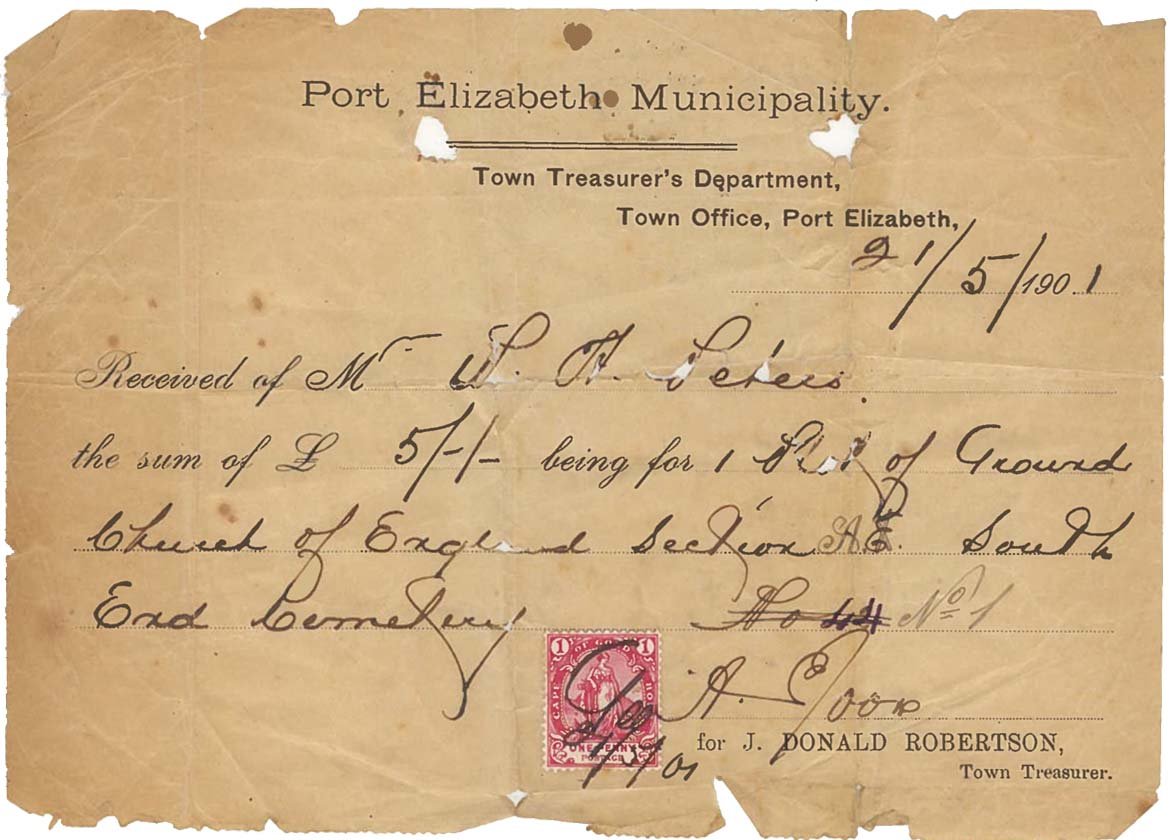 Port Elizabeth Municipality.
Town Treasurer's Department,
Town Office, Port Elizabeth,
21/5/1901
Received of Mr W. H. Peters
the sum of £ 5/-/- being for 1 Plot of Ground
Church of England Section A.E. South
End Cemetery No 44 No 1
CAPE OF GOOD HOPE
1 1
ONE PENNY
POSTAGE
21/5/01
A.
for J. DONALD ROBERTSON,
Town Treasurer.